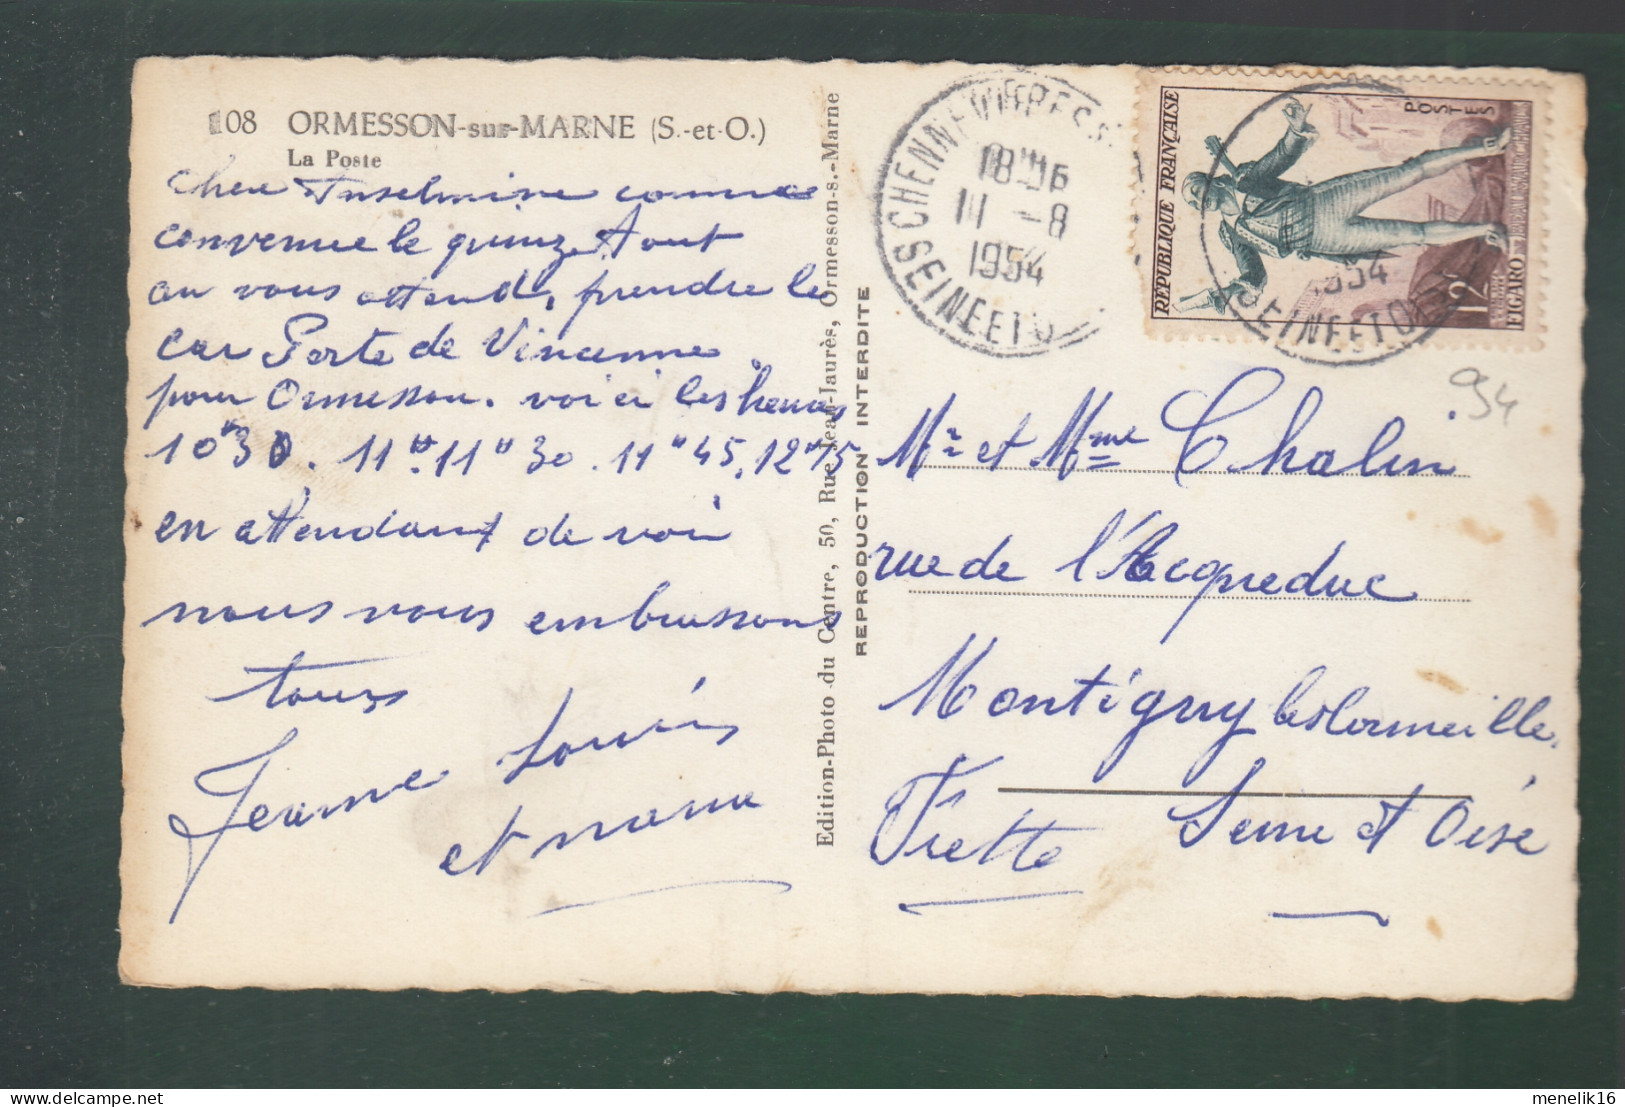 108 ORMESSON-sur-MARNE (S.-et-O.)
La Poste
Chere Anselmine comme
convenue le quinze Aout
on vous attend, prendre le
car Porte de Vincenne
pour Ormesson. voici les heures
10H30. 11H. 11H30. 11H45. 12H15
en attendant de voir
nous vous embrassons
tous
Jeanne Louis
et nana
Edition-Photo du Centre, 50, Rue Jean-Jaurès, Ormesson-s.-Marne
REPRODUCTION INTERDITE
CHENNEVIERES S.
18H16
11 -8
1954
SEINE ET O
REPUBLIQUE FRANÇAISE
POSTES
12F
FIGARO
1954
SEINE ET O
94
Mr et Mme Chalin
rue de l'Acqueduc
Montigny les Cormeille
Frette Seine et Oise
menelik16